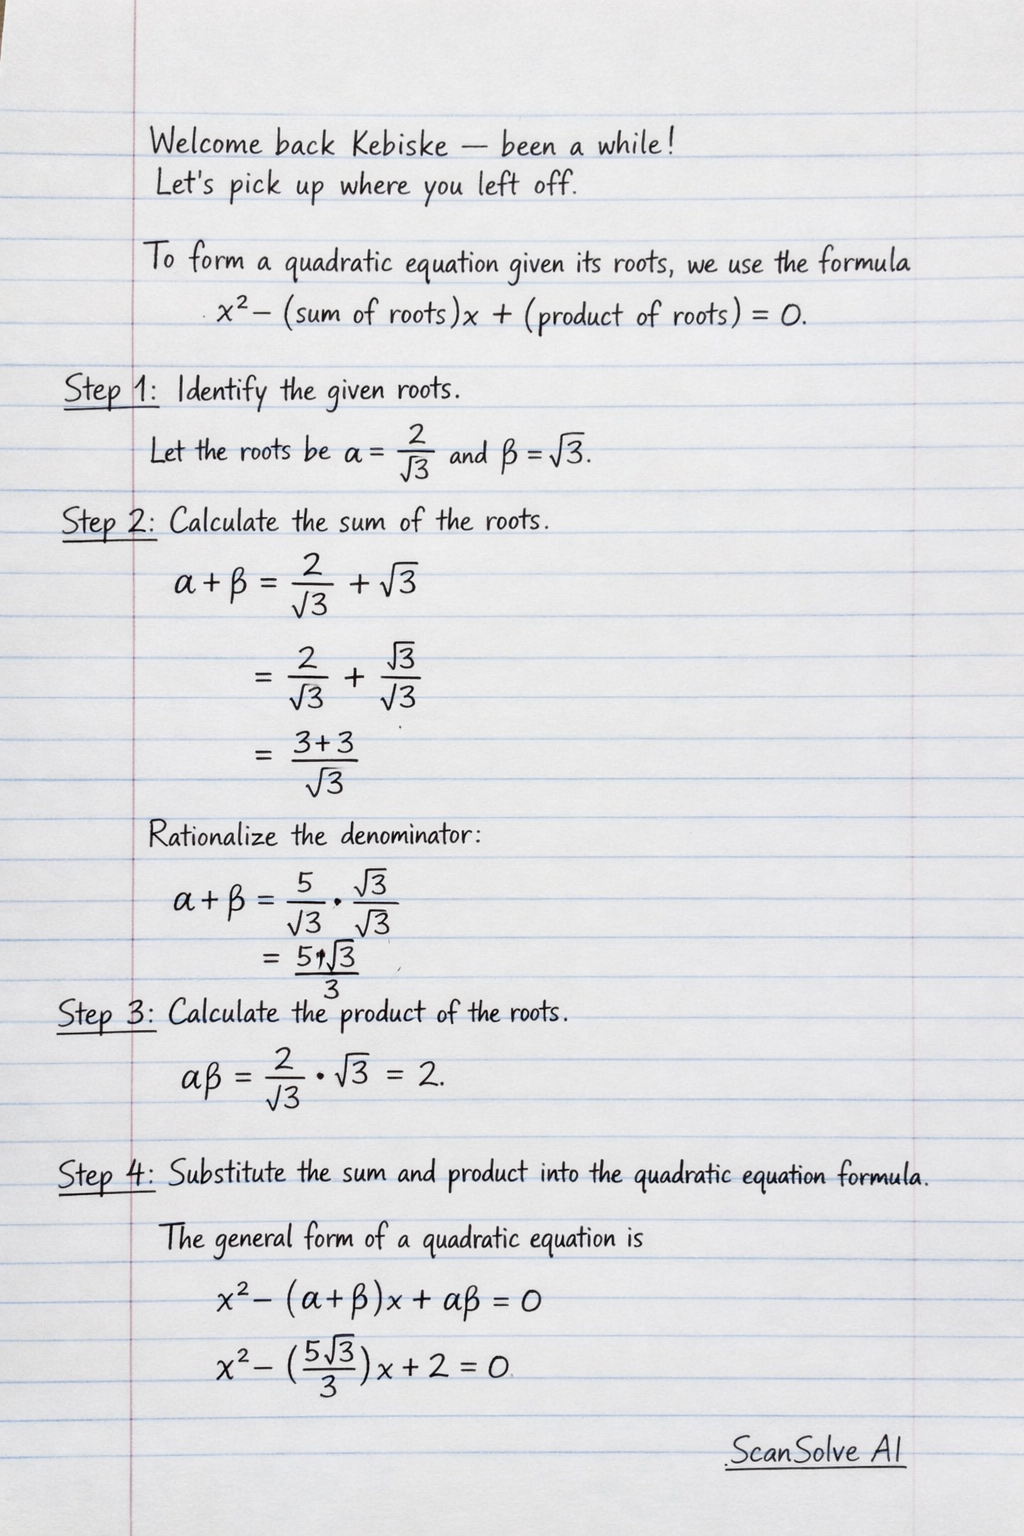 Welcome back Kebiske — been a while!
Let's pick up where you left off.
To form a quadratic equation given its roots, we use the formula
x² − (sum of roots)x + (product of roots) = 0.
Step 1: Identify the given roots.
Let the roots be α = 2/√3 and β = √3.
Step 2: Calculate the sum of the roots.
α + β = 2/√3 + √3
= 2/√3 + √3/√3
= 3+3/√3
Rationalize the denominator:
α + β = 5/√3 · √3/√3
= 5√3/3
Step 3: Calculate the product of the roots.
αβ = 2/√3 · √3 = 2.
Step 4: Substitute the sum and product into the quadratic equation formula.
The general form of a quadratic equation is
x² − (α + β)x + αβ = 0
x² − (5√3/3)x + 2 = 0.
ScanSolve AI